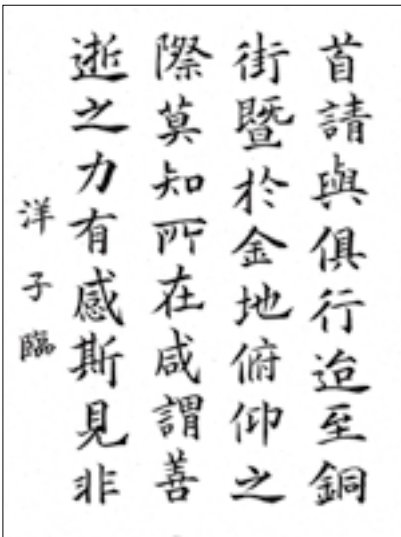 首請與俱行迨至銅
街曁於金地俯仰之
際莫知所在咸謂善
逝之力有感斯見非
洋子臨